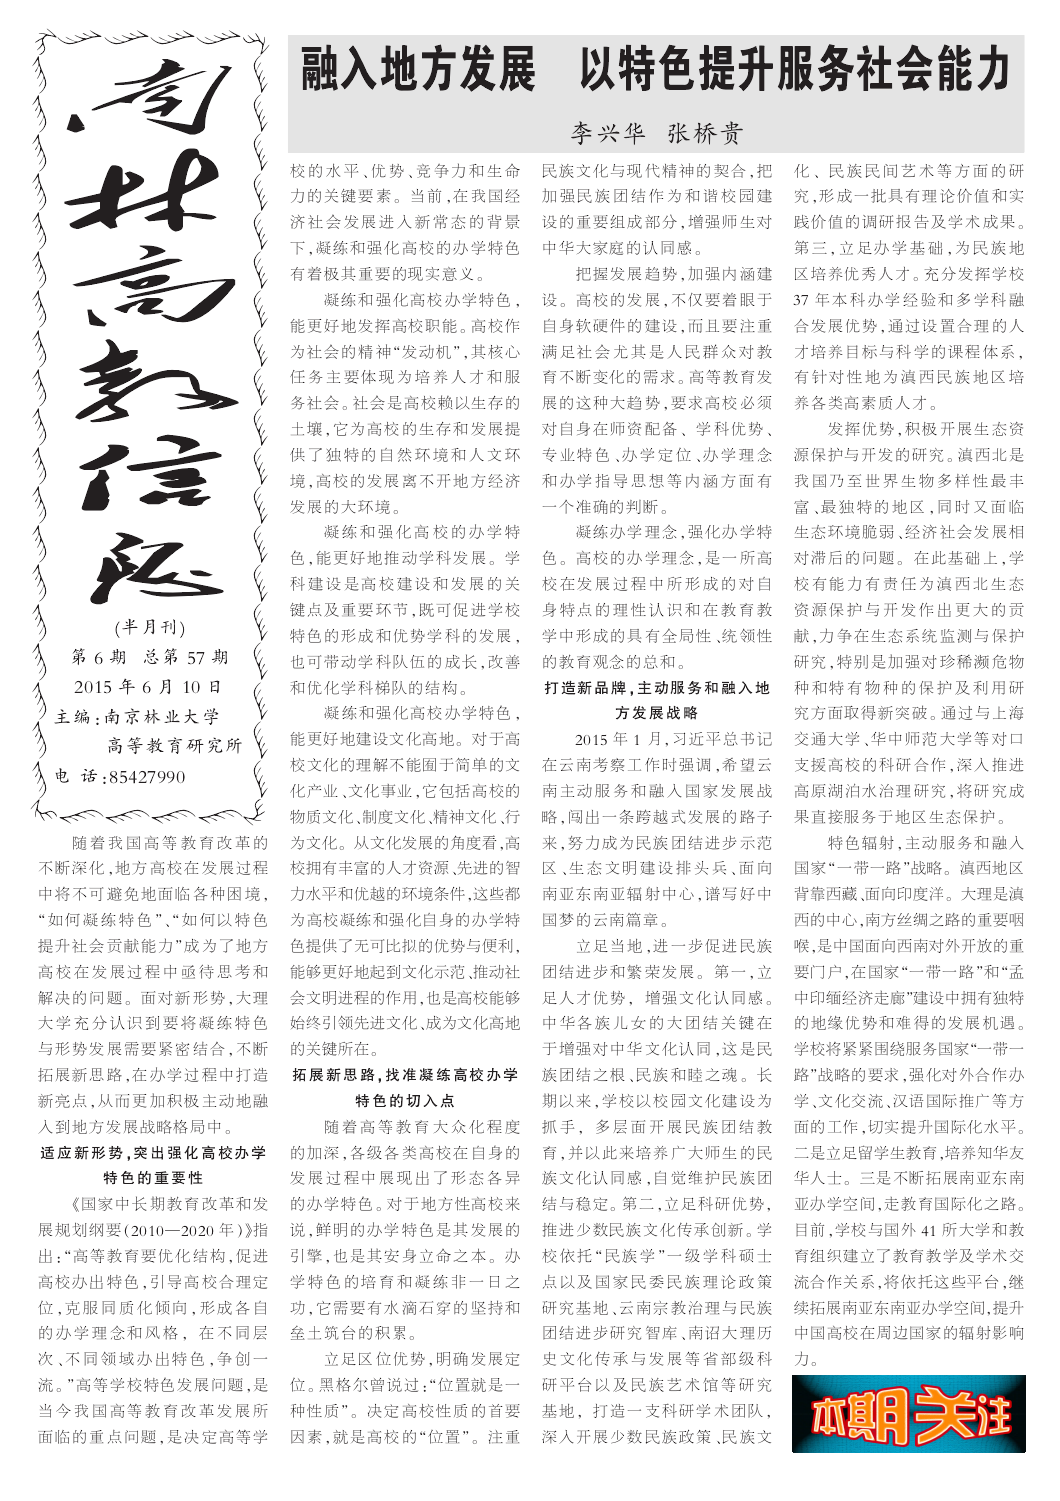 南林高教信息
(半月刊)
第 6 期 总第 57 期
2015 年 6 月 10 日
主编:南京林业大学
高等教育研究所
电 话:85427990
融入地方发展 以特色提升服务社会能力
李兴华 张桥贵
随着我国高等教育改革的
不断深化,地方高校在发展过程
中将不可避免地面临各种困境,
“如何凝练特色”、“如何以特色
提升社会贡献能力”成为了地方
高校在发展过程中亟待思考和
解决的问题。面对新形势,大理
大学充分认识到要将凝练特色
与形势发展需要紧密结合,不断
拓展新思路,在办学过程中打造
新亮点,从而更加积极主动地融
入到地方发展战略格局中。
适应新形势,突出强化高校办学
特色的重要性
《国家中长期教育改革和发
展规划纲要(2010—2020 年)》指
出:“高等教育要优化结构,促进
高校办出特色,引导高校合理定
位,克服同质化倾向,形成各自
的办学理念和风格，在不同层
次、不同领域办出特色,争创一
流。”高等学校特色发展问题,是
当今我国高等教育改革发展所
面临的重点问题,是决定高等学
校的水平、优势、竞争力和生命
力的关键要素。当前,在我国经
济社会发展进入新常态的背景
下,凝练和强化高校的办学特色
有着极其重要的现实意义。
凝练和强化高校办学特色,
能更好地发挥高校职能。高校作
为社会的精神“发动机”,其核心
任务主要体现为培养人才和服
务社会。社会是高校赖以生存的
土壤,它为高校的生存和发展提
供了独特的自然环境和人文环
境,高校的发展离不开地方经济
发展的大环境。
凝练和强化高校的办学特
色,能更好地推动学科发展。学
科建设是高校建设和发展的关
键点及重要环节,既可促进学校
特色的形成和优势学科的发展,
也可带动学科队伍的成长,改善
和优化学科梯队的结构。
凝练和强化高校办学特色,
能更好地建设文化高地。对于高
校文化的理解不能囿于简单的文
化产业、文化事业,它包括高校的
物质文化、制度文化、精神文化、行
为文化。从文化发展的角度看,高
校拥有丰富的人才资源、先进的智
力水平和优越的环境条件,这些都
为高校凝练和强化自身的办学特
色提供了无可比拟的优势与便利,
能够更好地起到文化示范、推动社
会文明进程的作用,也是高校能够
始终引领先进文化、成为文化高地
的关键所在。
拓展新思路,找准凝练高校办学
特色的切入点
随着高等教育大众化程度
的加深,各级各类高校在自身的
发展过程中展现出了形态各异
的办学特色。对于地方性高校来
说,鲜明的办学特色是其发展的
引擎,也是其安身立命之本。办
学特色的培育和凝练非一日之
功,它需要有水滴石穿的坚持和
垒土筑台的积累。
立足区位优势,明确发展定
位。黑格尔曾说过:“位置就是一
种性质”。决定高校性质的首要
因素,就是高校的“位置”。注重
民族文化与现代精神的契合,把
加强民族团结作为和谐校园建
设的重要组成部分,增强师生对
中华大家庭的认同感。
把握发展趋势,加强内涵建
设。高校的发展,不仅要着眼于
自身软硬件的建设,而且要注重
满足社会尤其是人民群众对教
育不断变化的需求。高等教育发
展的这种大趋势,要求高校必须
对自身在师资配备、学科优势、
专业特色、办学定位、办学理念
和办学指导思想等内涵方面有
一个准确的判断。
凝练办学理念,强化办学特
色。高校的办学理念,是一所高
校在发展过程中所形成的对自
身特点的理性认识和在教育教
学中形成的具有全局性、统领性
的教育观念的总和。
打造新品牌,主动服务和融入地
方发展战略
2015 年 1 月,习近平总书记
在云南考察工作时强调,希望云
南主动服务和融入国家发展战
略,闯出一条跨越式发展的路子
来,努力成为民族团结进步示范
区、生态文明建设排头兵、面向
南亚东南亚辐射中心,谱写好中
国梦的云南篇章。
立足当地,进一步促进民族
团结进步和繁荣发展。第一,立
足人才优势，增强文化认同感。
中华各族儿女的大团结关键在
于增强对中华文化认同,这是民
族团结之根、民族和睦之魂。长
期以来,学校以校园文化建设为
抓手，多层面开展民族团结教
育,并以此来培养广大师生的民
族文化认同感,自觉维护民族团
结与稳定。第二,立足科研优势,
推进少数民族文化传承创新。学
校依托“民族学”一级学科硕士
点以及国家民委民族理论政策
研究基地、云南宗教治理与民族
团结进步研究智库、南诏大理历
史文化传承与发展等省部级科
研平台以及民族艺术馆等研究
基地，打造一支科研学术团队,
深入开展少数民族政策、民族文
化、民族民间艺术等方面的研
究,形成一批具有理论价值和实
践价值的调研报告及学术成果。
第三,立足办学基础,为民族地
区培养优秀人才。充分发挥学校
37 年本科办学经验和多学科融
合发展优势,通过设置合理的人
才培养目标与科学的课程体系,
有针对性地为滇西民族地区培
养各类高素质人才。
发挥优势,积极开展生态资
源保护与开发的研究。滇西北是
我国乃至世界生物多样性最丰
富、最独特的地区,同时又面临
生态环境脆弱、经济社会发展相
对滞后的问题。在此基础上,学
校有能力有责任为滇西北生态
资源保护与开发作出更大的贡
献,力争在生态系统监测与保护
研究,特别是加强对珍稀濒危物
种和特有物种的保护及利用研
究方面取得新突破。通过与上海
交通大学、华中师范大学等对口
支援高校的科研合作,深入推进
高原湖泊水治理研究,将研究成
果直接服务于地区生态保护。
特色辐射,主动服务和融入
国家“一带一路”战略。滇西地区
背靠西藏、面向印度洋。大理是滇
西的中心,南方丝绸之路的重要咽
喉,是中国面向西南对外开放的重
要门户,在国家“一带一路”和“孟
中印缅经济走廊”建设中拥有独特
的地缘优势和难得的发展机遇。
学校将紧紧围绕服务国家“一带一
路”战略的要求,强化对外合作办
学、文化交流、汉语国际推广等方
面的工作,切实提升国际化水平。
二是立足留学生教育,培养知华友
华人士。三是不断拓展南亚东南
亚办学空间,走教育国际化之路。
目前,学校与国外 41 所大学和教
育组织建立了教育教学及学术交
流合作关系,将依托这些平台,继
续拓展南亚东南亚办学空间,提升
中国高校在周边国家的辐射影响
力。
本期关注